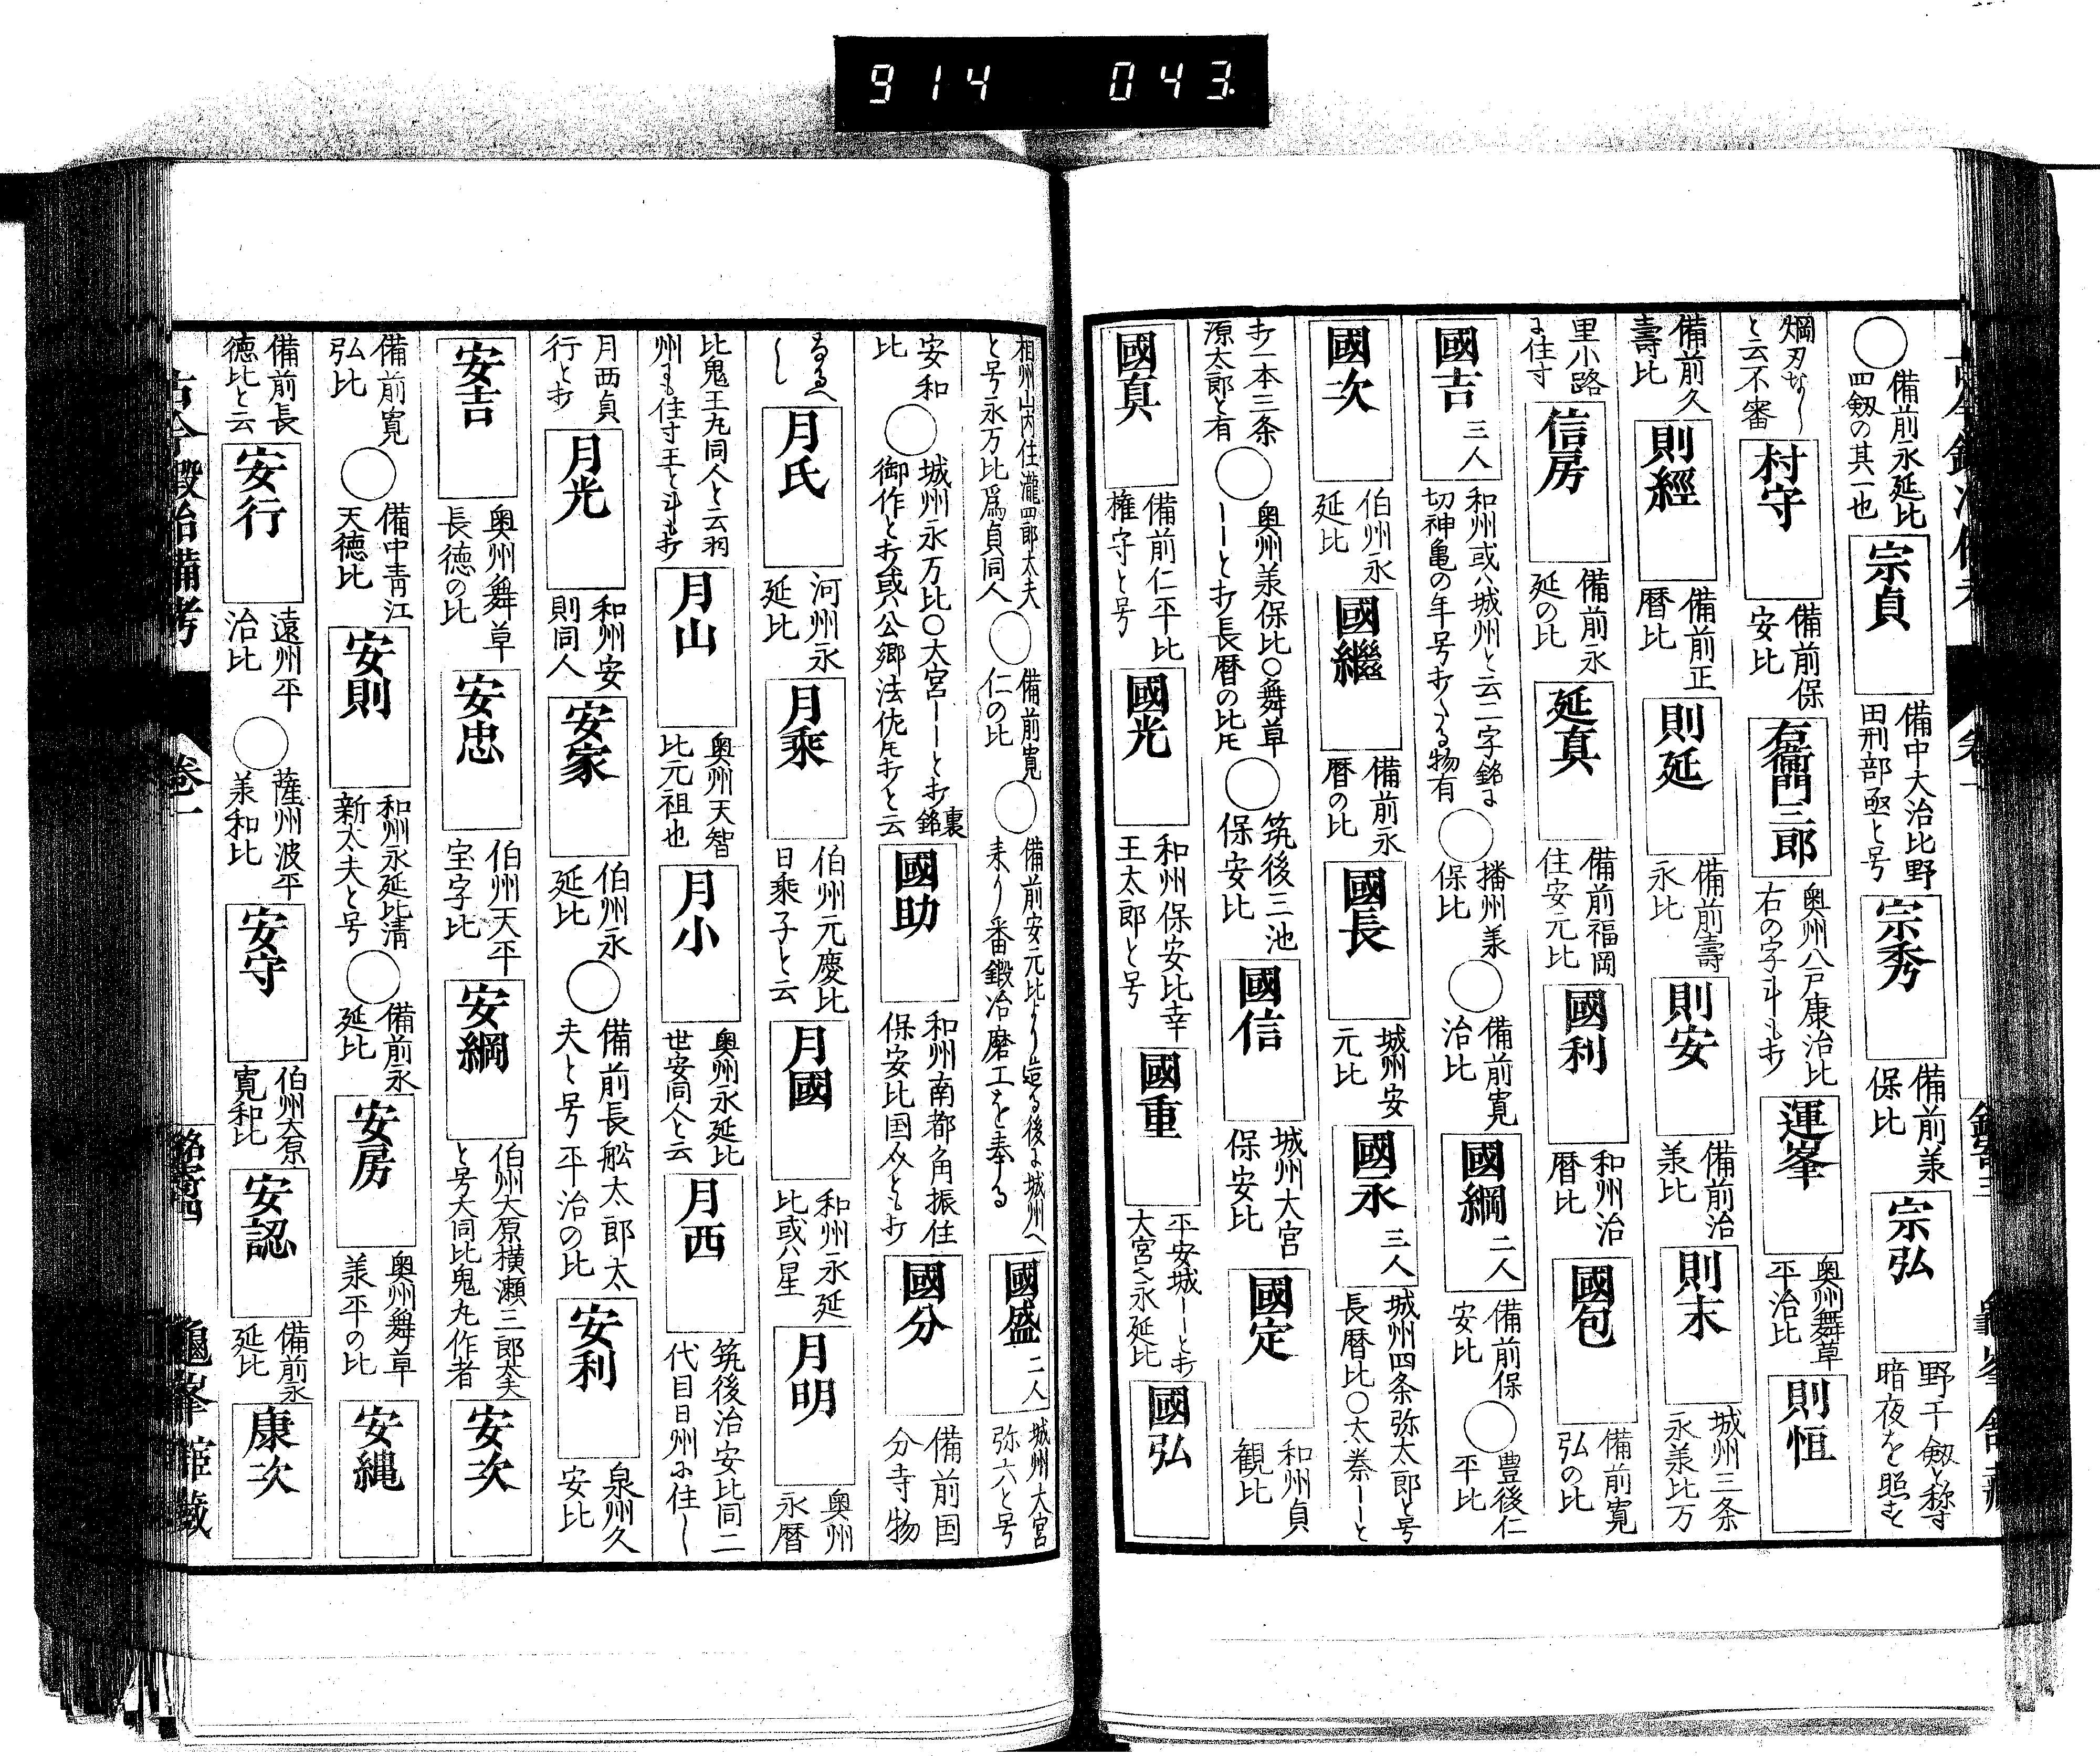 914 043
○ 備前永延比四剱の其一也 宗貞 備中大治比野田刑部亟と号 宗秀 備前兼保比 宗弘 野干剱と称す暗夜を照す
と云不審 村守 備前保安比 右衛門三郎 奥州八戸康治比右の字斗も打 運峯 奥州舞草平治比 則恒
備前久壽比 則經 備前正暦比 則延 備前壽永比 則安 備前治兼比 則末 城州三条永兼比万
里小路に住す 信房 備前永延の比 延真 備前福岡住安元比 國利 和州治暦比 國包 備前寛弘の比
國吉 三人 和州或ハ城州と云二字銘に切神亀の年号打たる物有 ○ 播州兼保比 ○ 備前寛治比 國綱 二人 備前保安比 ○ 豊後仁平比
國次 伯州永延比 國繼 備前永暦の比 國長 城州安元比 國永 三人 城州四条弥太郎と号長暦比○太秦ーと
打一本三条源太郎と有 ○ 奥州兼保比○舞草ーーと打長暦の比とも ○ 筑後三池保安比 國信 城州大宮保安比 國定 和州貞観比
國真 備前仁平比権守と号 國光 和州保安比幸王太郎と号 國重 平安城ーーと打大宮人永延比 國弘
相州山内住瀧四郎太夫と号永万比爲貞同人 ○ 備前寛仁の比 ○ 備前安元比より造る後に城州へ来り番鍛冶磨工を奉る 國盛 二人 城州大宮弥六と号
安和比 ○ 城州永万比○大宮ーーと打裏銘御作と打或ハ公郷法佐とも打と云 國助 和州南都角振住保安比国分とも打 國分 備前国分寺物
なるへし 月氏 河州永延比 月乘 伯州元慶比日乘子と云 月國 和州永延比或ハ星 月明 奥州永暦
比鬼王丸同人と云羽州にも住す王と斗も打 月山 奥州天智比元祖也 月小 奥州永延比世安同人と云 月西 筑後治安比同二代目日州に住し
月西貞行と打 月光 和州安則同人 安家 伯州永延比 ○ 備前長舩太郎太夫と号平治の比 安利 泉州久安比
安吉 奥州舞草長徳の比 安忠 伯州天平宝字比 安綱 伯州大原横瀬三郎太夫と号大同比鬼丸作者 安次
備前寛弘比 ○ 備中青江天徳比 安則 和州永延比清新太夫と号 ○ 備前永延比 安房 奥州舞草兼平の比 安縄
備前長徳比と云 安行 遠州平治比 ○ 薩州波平兼和比 安守 伯州大原寛和比 安認 備前永延比 康次
古今鍛冶備考 卷一